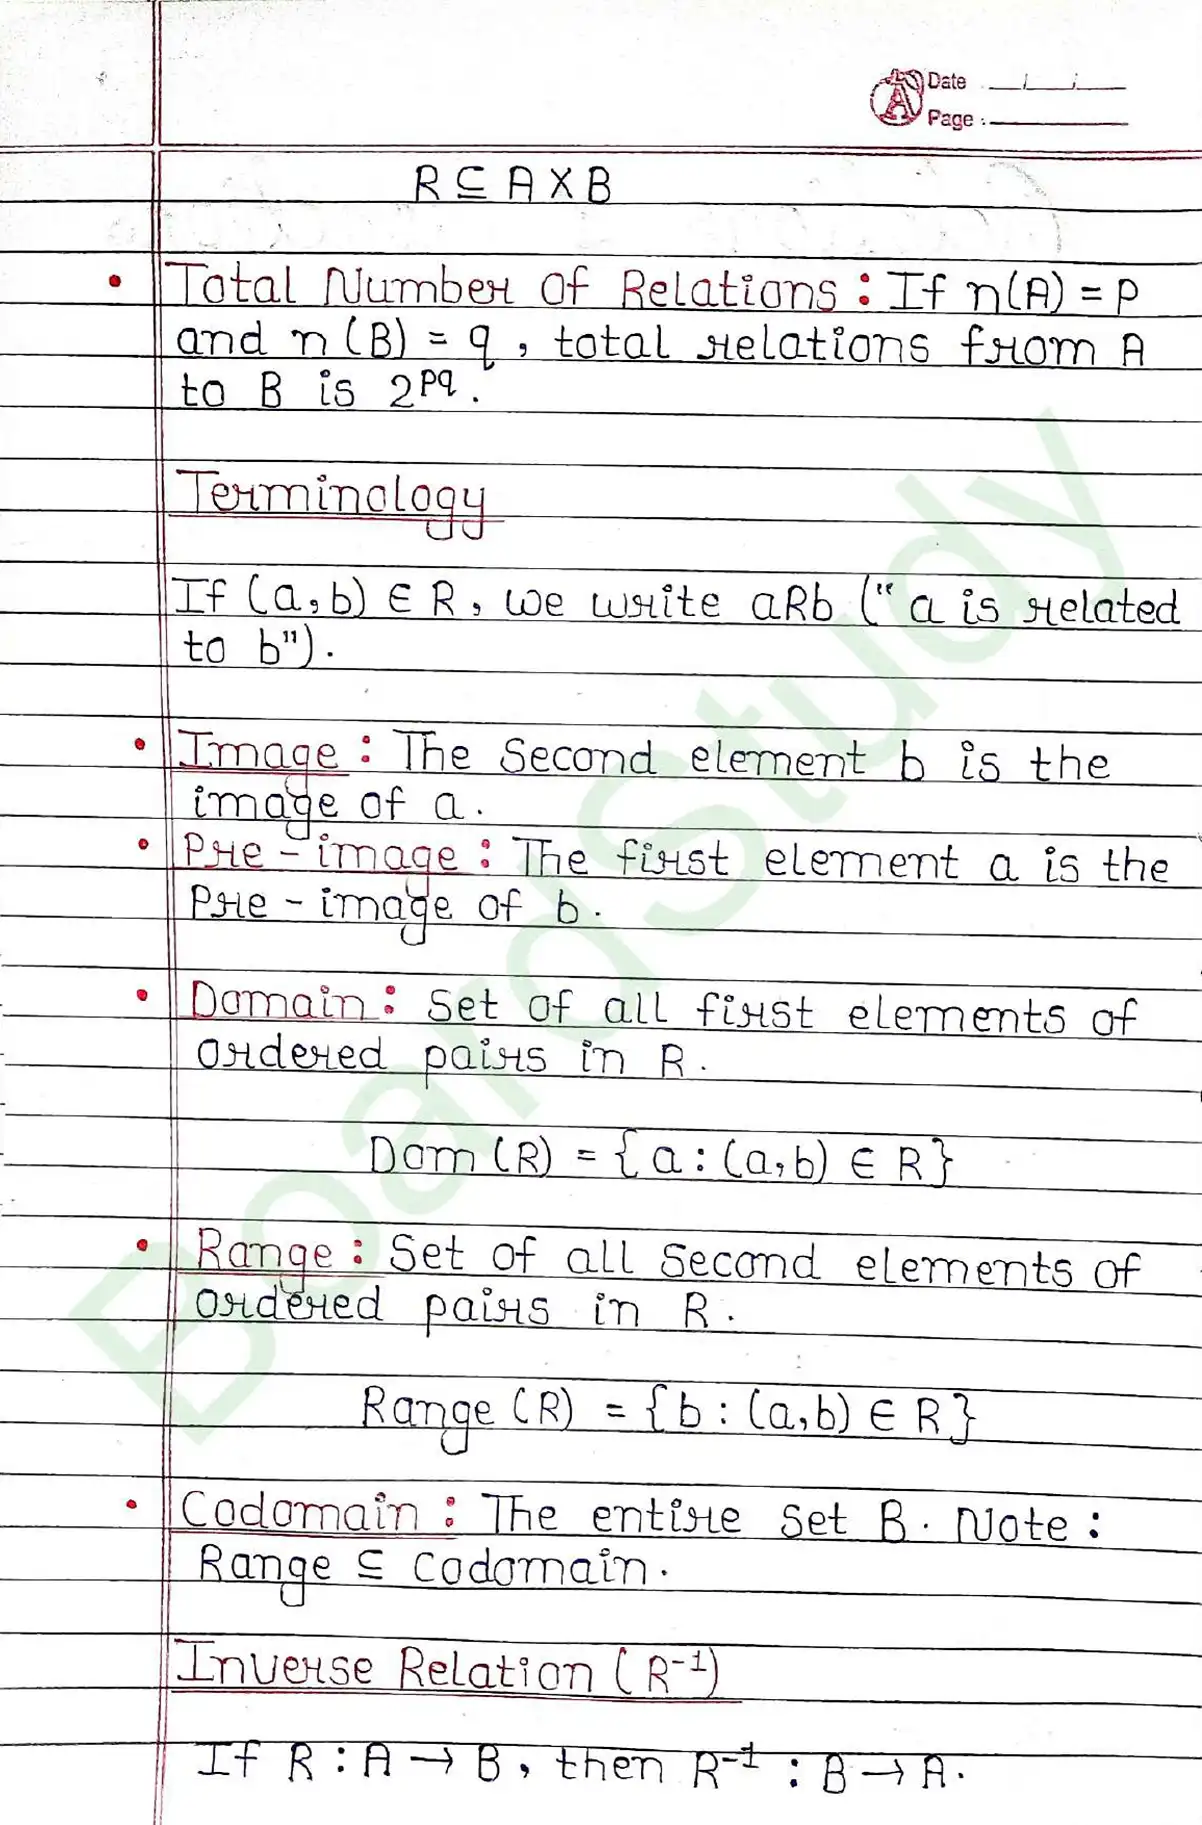 Date
Page :
R ⊆ A X B
• Total Number of Relations : If n(A) = p
and n (B) = q , total relations from A
to B is 2^pq .
Terminology
If (a,b) ∈ R, we write aRb (" a is related
to b") .
• Image : The Second element b is the
image of a .
• Pre - image : The first element a is the
Pre - image of b .
• Domain : Set of all first elements of
ordered pairs in R .
Dom (R) = { a : (a,b) ∈ R }
• Range : Set of all Second elements of
ordered pairs in R .
Range (R) = { b : (a,b) ∈ R }
• Codomain : The entire Set B . Note :
Range ⊆ Codomain .
Inverse Relation ( R⁻¹ )
If R : A → B , then R⁻¹ : B → A .
BoardStudy